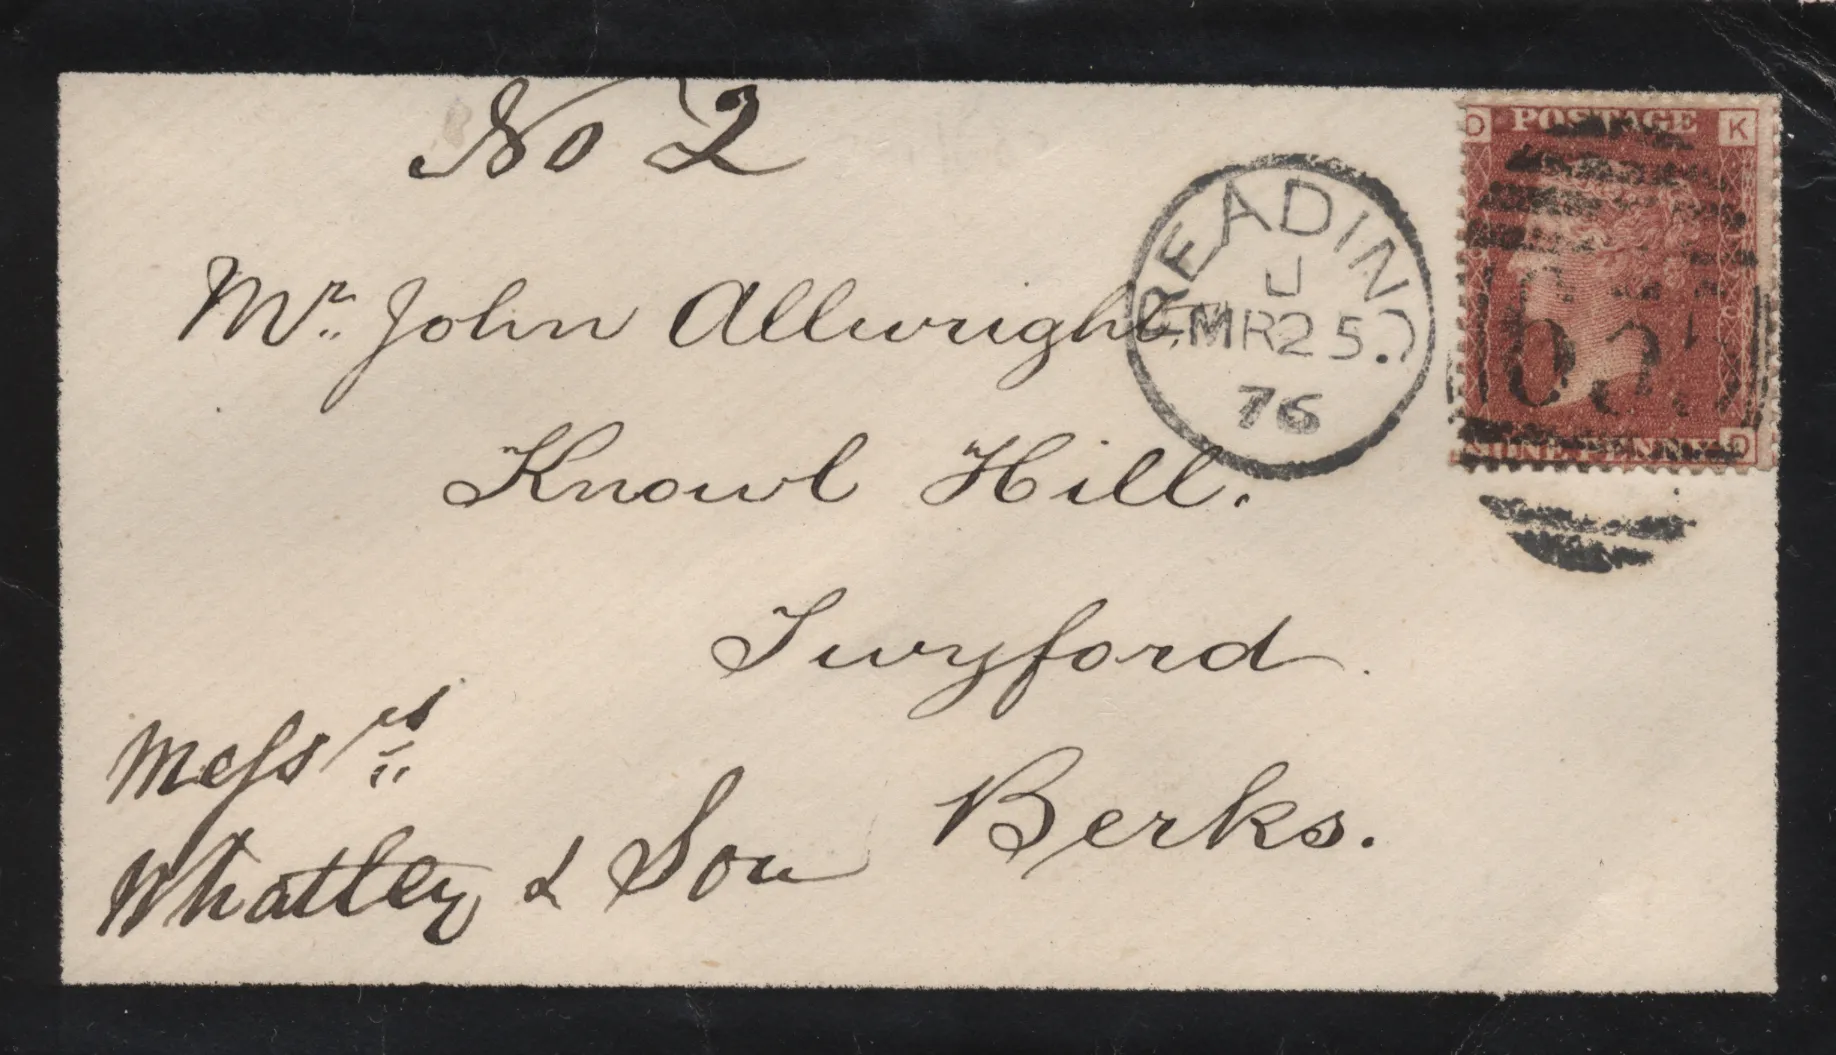 No 2
Mr. John Allwright,
Knowl Hill.
Twyford.
Berks.
Messrs
Whatley & Son
READING
U
MR 25.
76
D POSTAGE K
ONE PENNY D